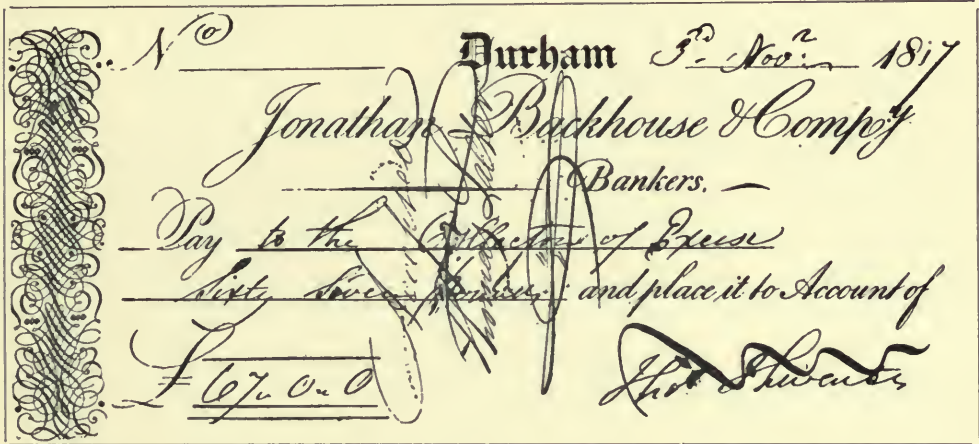 No Durham 3rd Novr 1817
Jonathan Backhouse & Compy
Bankers.
Pay to the Collector of Excise
Sixty Seven Pounds and place it to Account of
£ 67. 0. 0
Thos